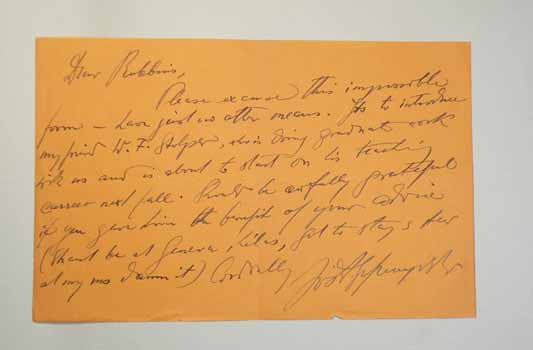 Dear Robbins,
Please excuse this impossible
form – have just no other means. It's to introduce
my friend W. F. Stolper, who is doing graduate work
with us and is about to start on his teaching
career next fall. Should be awfully grateful
if you gave him the benefit of your advice
(Shan't be at Geneva, alas, got to stay & slave
at my ms damn it) Cordially